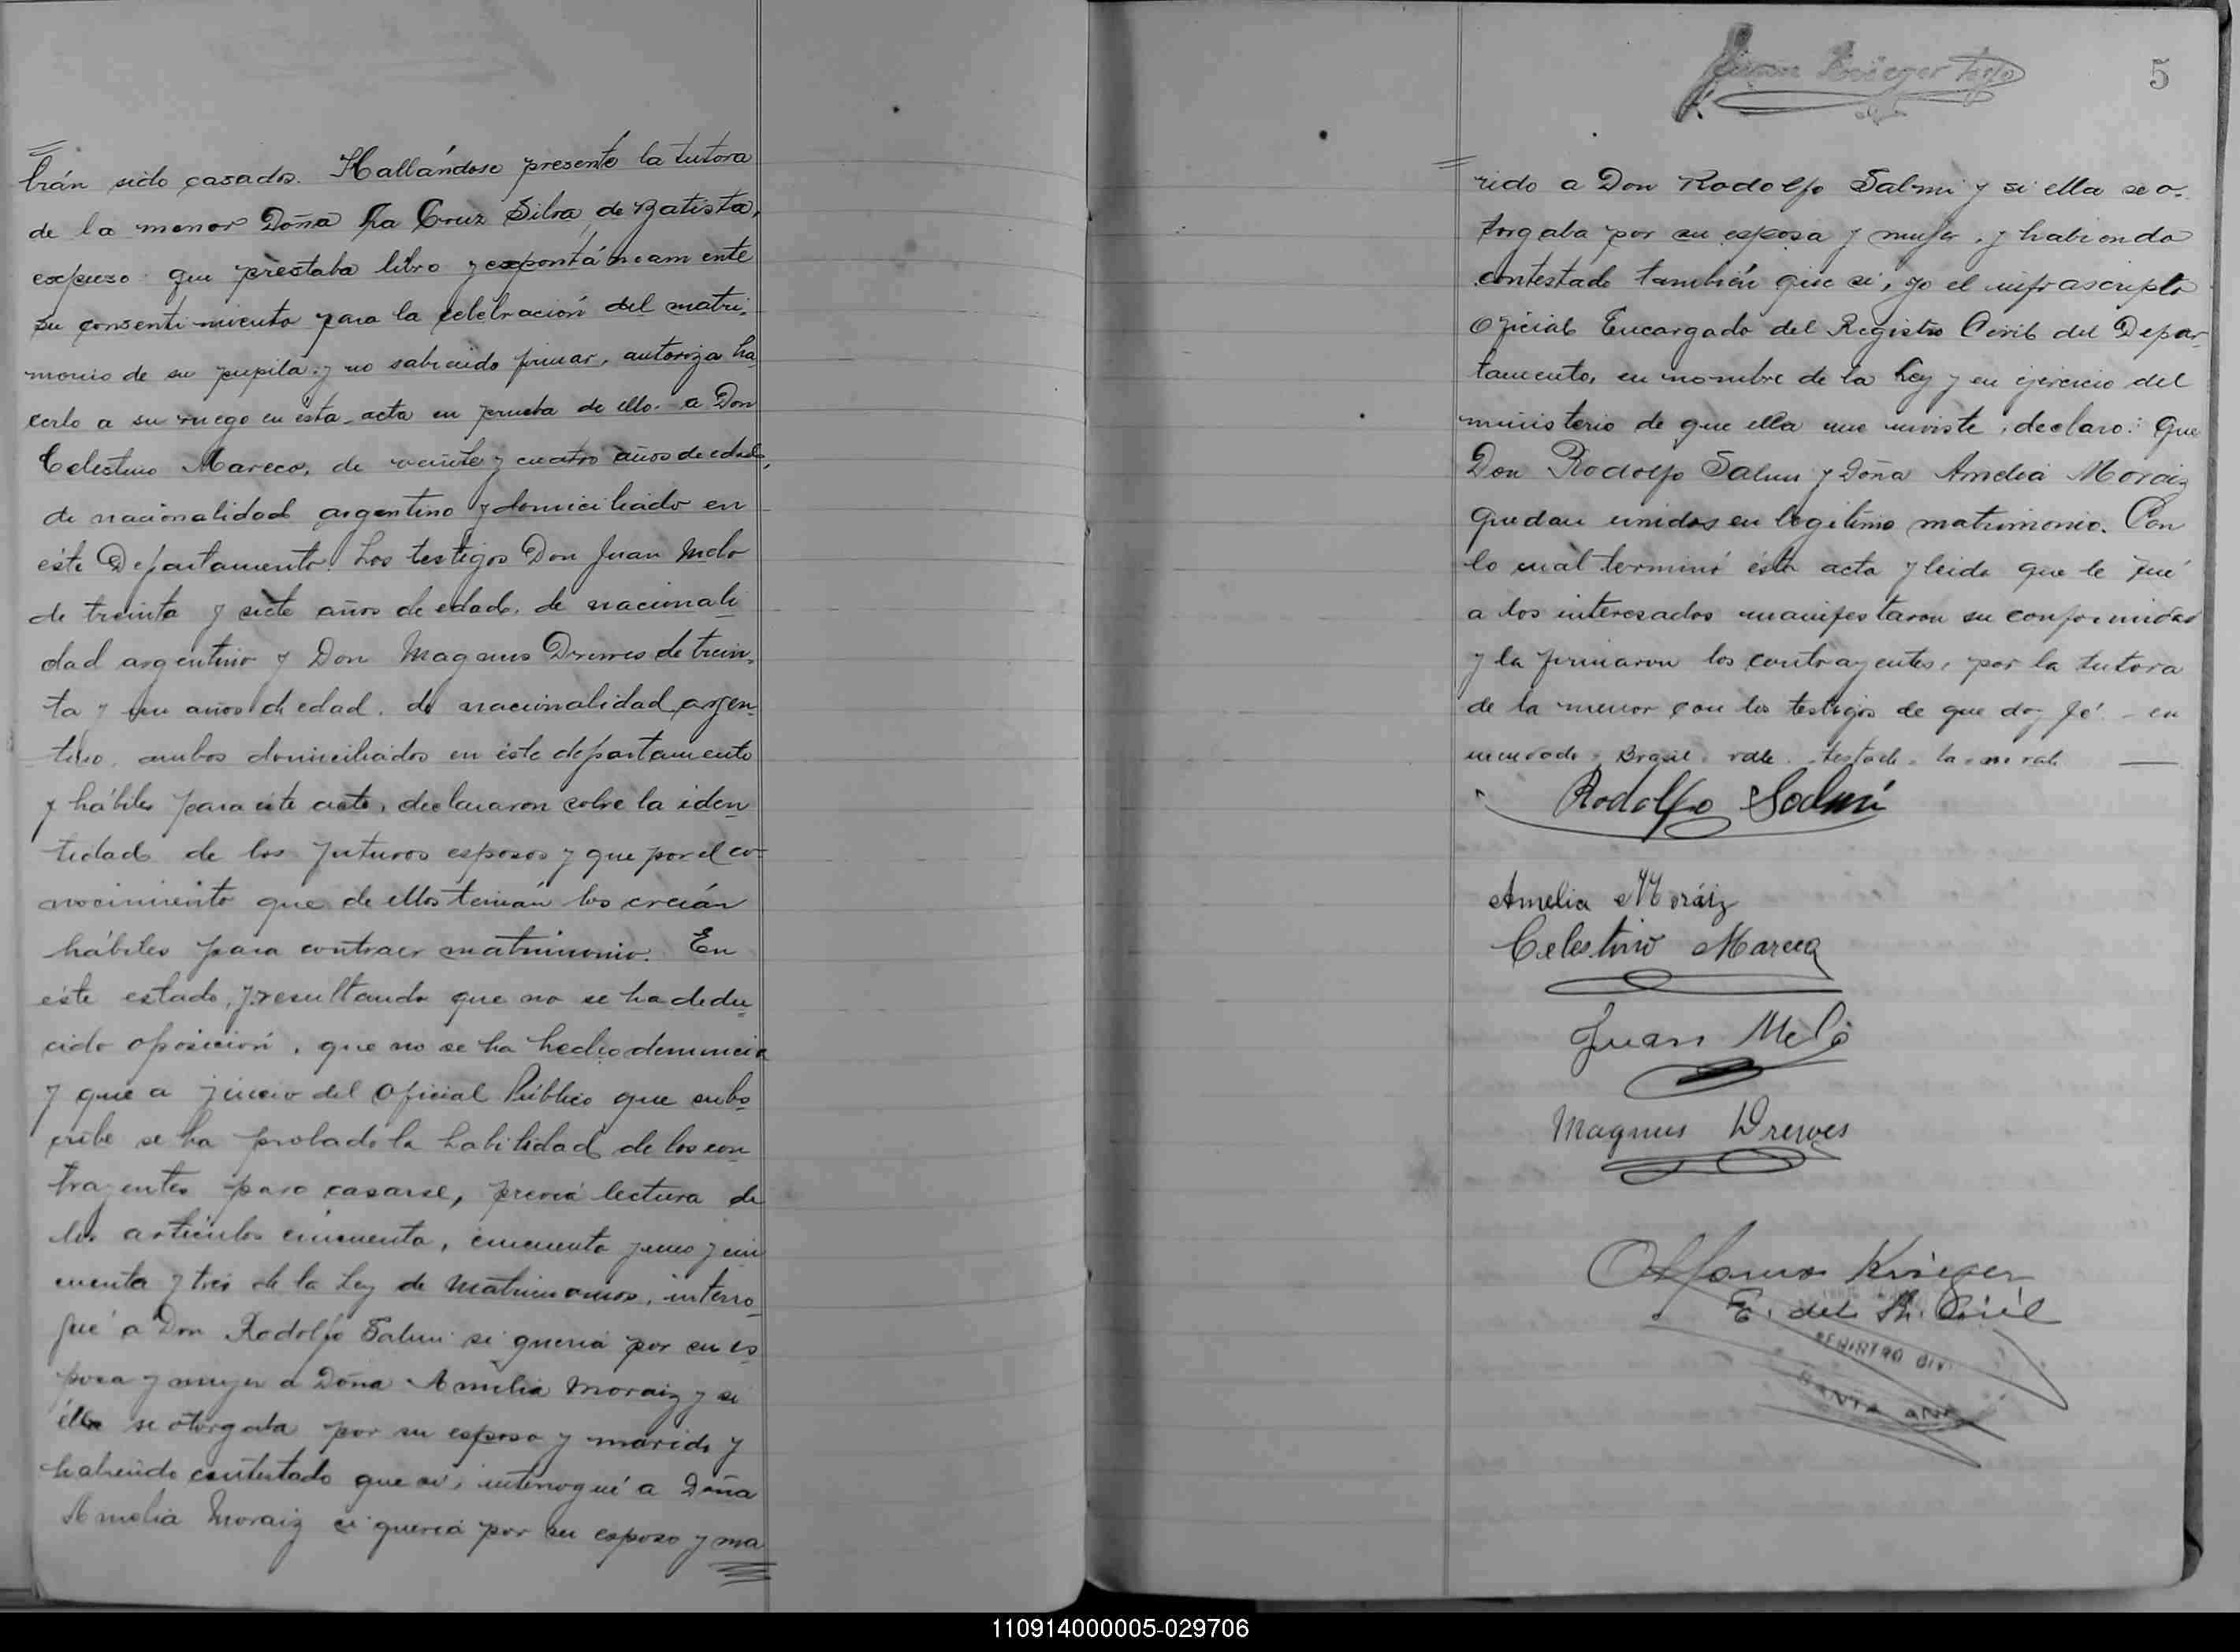 brán sido casados. Hallándose presente la tutora
de la menor Doña La Cruz Silva de Batista,
expuso que prestaba libre y espontáneamente
su consentimiento para la celebración del matri-
monio de su pupila y no sabiendo firmar, autoriza ha
cerlo a su ruego en ésta acta en prueba de ello a Don
Celestino Mareco, de veinte y cuatro años de edad,
de nacionalidad argentino y domiciliado en
éste Departamento. Los testigos Don Juan Melo
de treinta y siete años de edad, de nacionali
dad argentino y Don Magnus Drewes de trein-
ta y un años de edad, de nacionalidad argen-
tino, ambos domiciliados en éste departamento
y hábiles para este acto, declararon sobre la iden
tidad de los futuros esposos y que por el co-
nocimiento que de ellos tenían los creían
hábiles para contraer matrimonio. En
éste estado, y resultando que no se ha dedu
cido oposición, que no se ha hecho denuncia
y que a juicio del Oficial Público que subs
cribe se ha probado la habilidad de los con
trayentes para casarse, previa lectura de
los artículos cincuenta, cincuenta y uno y cin
cuenta y tres de la Ley de Matrimonios, interro
gué a Don Rodolfo Salmi si quería por su es
posa y mujer a Doña Amelia Moraiz y si
élla se otorgaba por su esposo y marido y
habiendo contestado que si, interrogué a Doña
Amelia Moraiz si quería por su esposo y ma
Juan Krieger
5
rido a Don Rodolfo Salmi y si ella se o-
torgaba por su esposa y mujer, y habiendo
contestado también que si, yo el infrascripto
Oficial Encargado del Registro Civil del Depar-
tamento, en nombre de la Ley y en ejercicio del
ministerio de que ella me inviste, declaro: Que
Don Rodolfo Salmi y Doña Amelia Moraiz
quedan unidos en legítimo matrimonio. Con
lo cual terminó ésta acta y leida que le fué
a los interesados manifestaron su conformidad
y la firmaron los contrayentes, por la tutora
de la menor con los testigos de que doy fé. - en
mendado - Brasil - vale - testado - la - no vale
Rodolfo Salmi
Amelia Moráiz
Celestino Mareco
Juan Melo
Magnus Drewes
Alfonso Krieger
E. del R. Civil
REGISTRO CIVIL
SANTA ANA
110914000005-029706